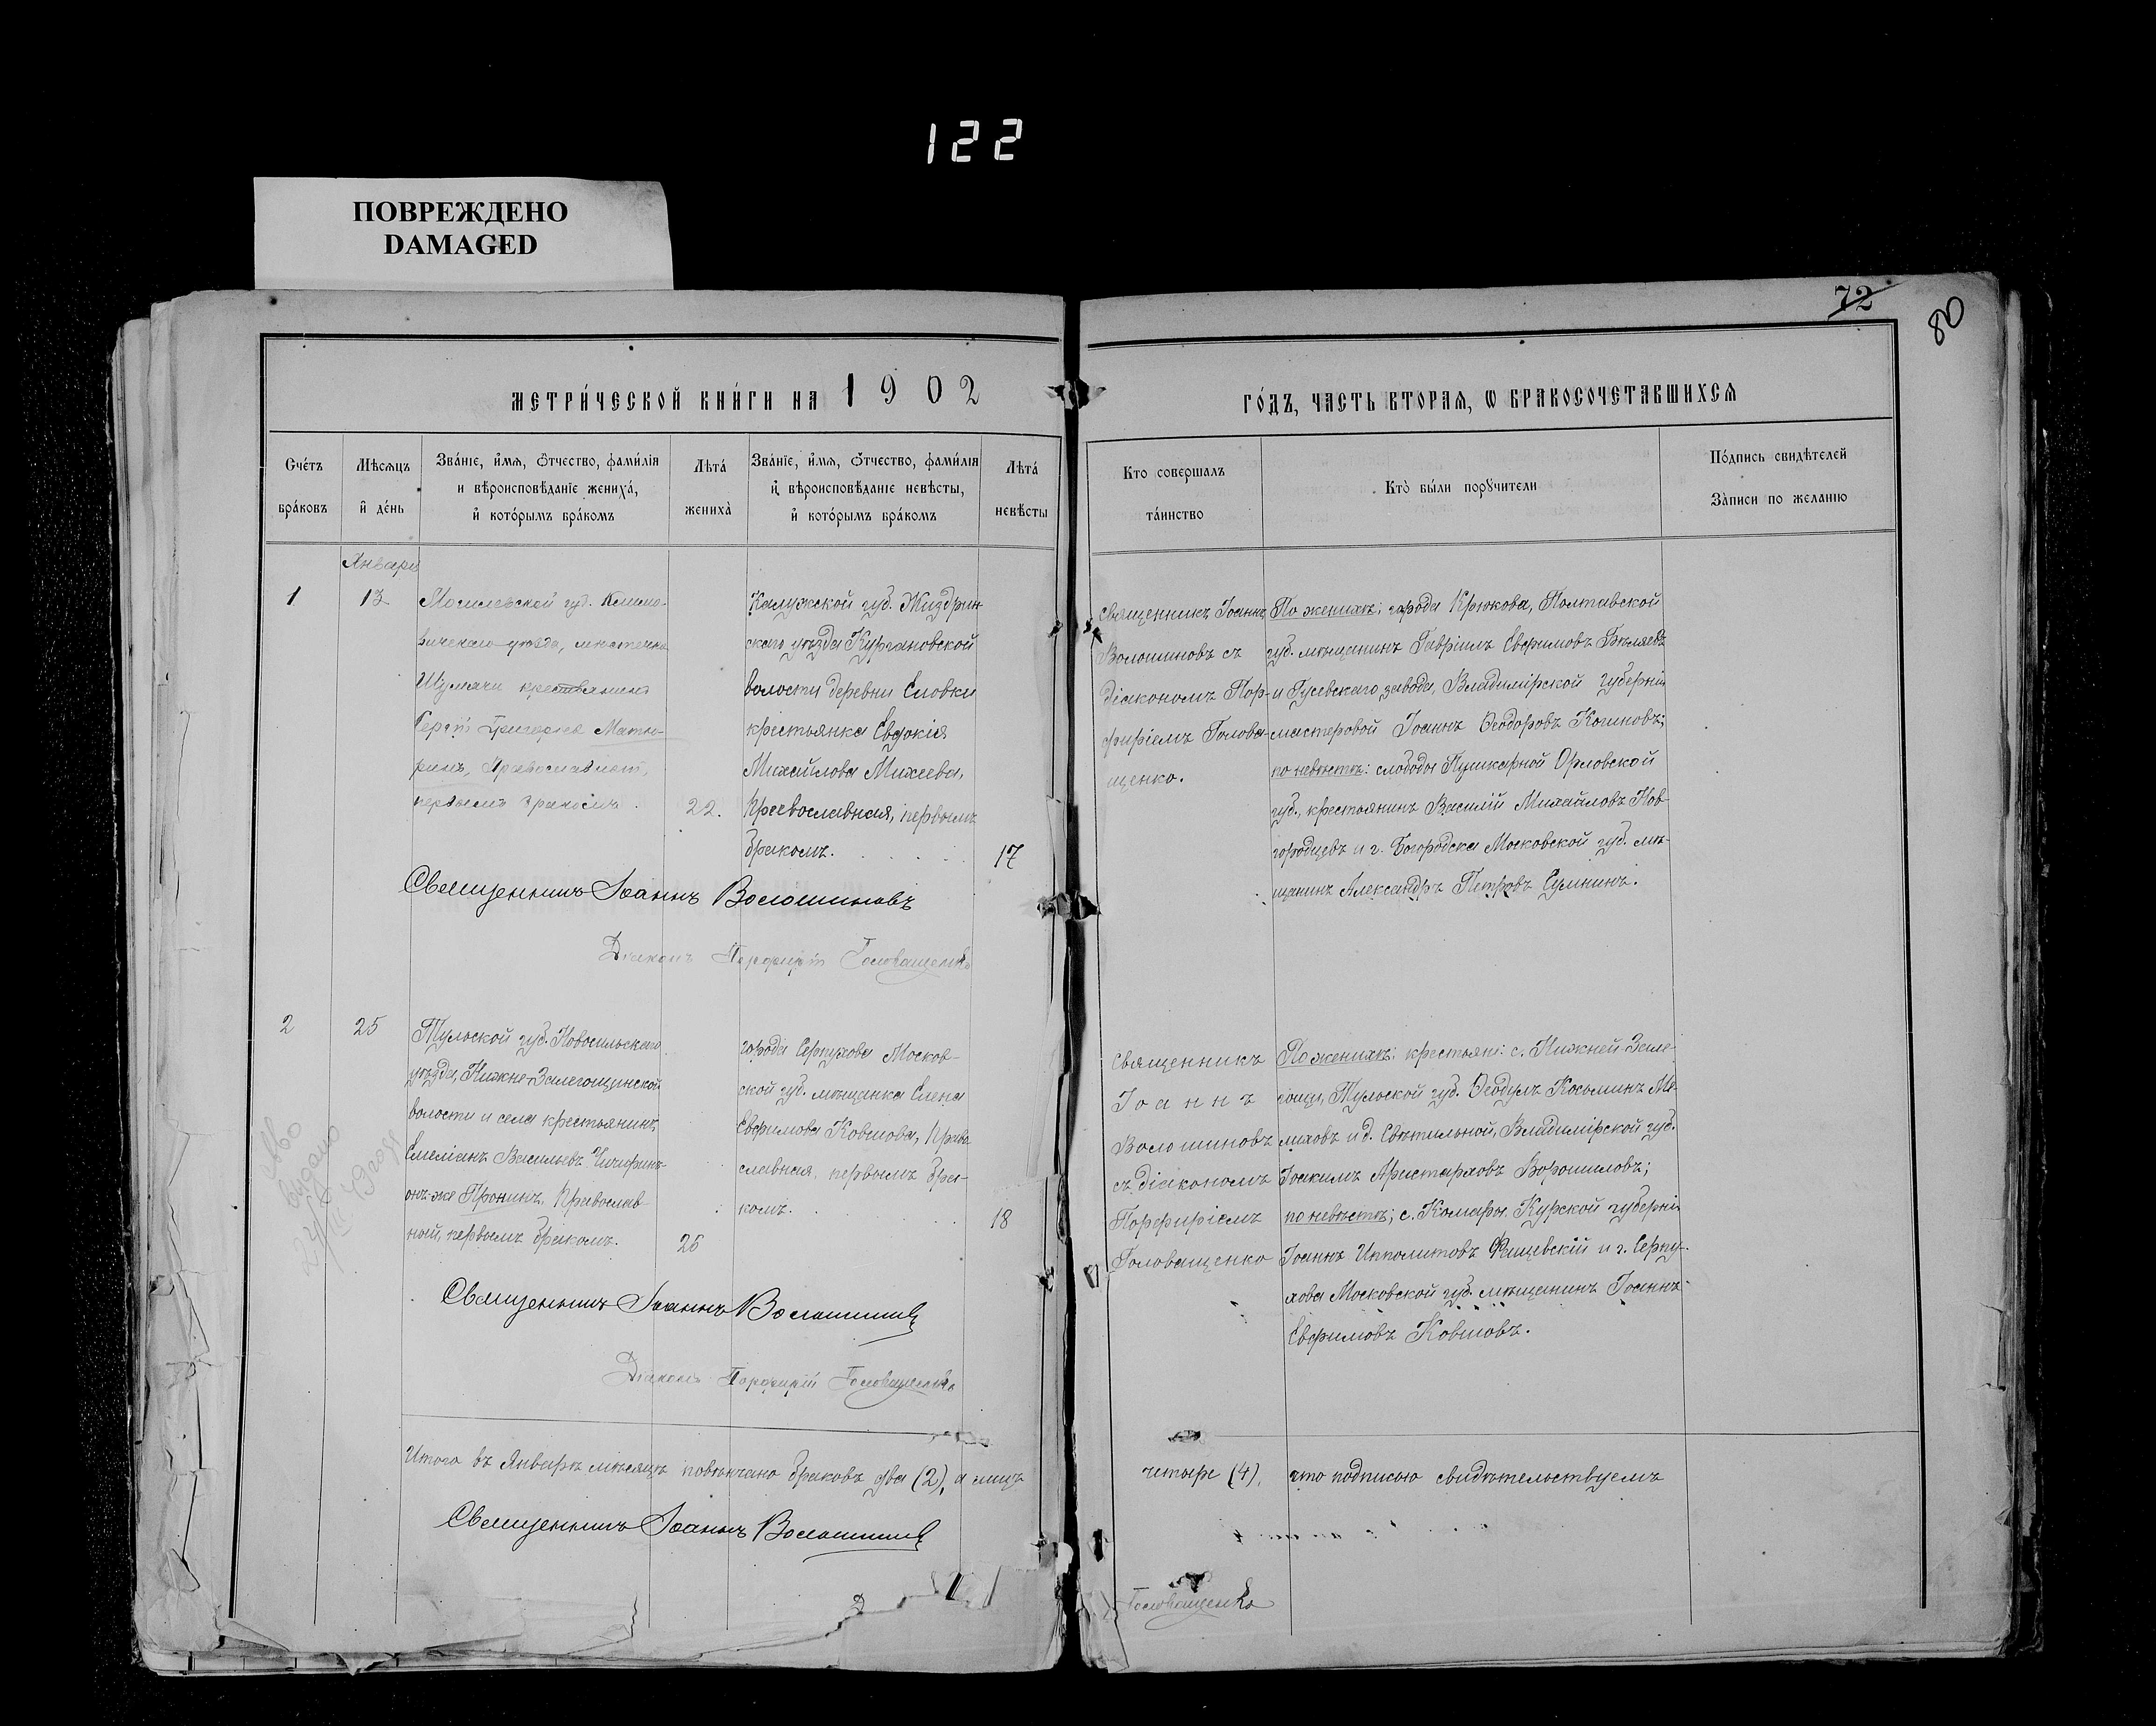 122
ПОВРЕЖДЕНО
DAMAGED
72
80
МЕТРИ́ЧЕСКОЙ КНИ́ГИ НА 1902
ГО́ДЪ, ЧАСТЬ ВТОРАЯ, Ѡ БРАКОСОЧЕТАВШИХСЯ
Сче́тъ
бра́ковъ
Мѣсяцъ
и҆ де́нь
Зва́нїе, и҆мя, ѻ҆тчество, фами́лїя
и вѣроисповѣданїе жениха́,
и҆ кото́рымъ бра́комъ
Лѣта́
жениха̀
Зва́нїе, и҆мя, ѻ҆тчество, фами́лїя
и҆ вѣроисповѣданїе невѣсты,
и҆ кото́рымъ бра́комъ
Лѣта́
невѣсты
Кто совершалъ
та́инство
Кто̀ бы́ли порꙋчители
По́дпись свидѣтелей
За̀писи по желанїю
Января
1
13
Могилевской губ. Климо-
вичскаго уѣзда, мѣстечка
Шумячи крестьянинъ
Сергій Григорьев Матю-
ринъ, Православный,
первымъ бракомъ.
22.
Калужской губ. Жиздрин
скаго уѣзда Кургановской
волости деревни Еловки
крестьянка Евдокія
Михайлова Михеева,
Православная, первымъ
бракомъ.
17
Священникъ Іоаннъ
Волошиновъ съ
діакономъ Пор-
фиріемъ Голова-
щенко.
По женихѣ: города Крюкова, Полтавской
губ. мѣщанинъ Гавріилъ Евфимовъ Бѣляевъ
и Гусевскаго завода, Владимірской губерніи
мастеровой Іоаннъ Ѳеодоровъ Логиновъ;
по невѣстѣ: слободы Пушкарной Орловской
губ., крестьянинъ Василій Михайловъ Нов-
городцевъ и г. Богородска Московской губ. мѣ-
щанинъ Александръ Петровъ Сумнинъ.
Священникъ Іоаннъ Волошиновъ
Діаконъ Порфирій Головащенко
2
25
Тульской губ. Новосильскаго
уѣзда, Нижне-Залегощинской
волости и села крестьянинъ
Емеліанъ Васильевъ
онъ-же Пронинъ, Православ-
ный, первымъ бракомъ.
25
города Серпухова Москов-
ской губ. мѣщанка Елена
Евфимова Ковшова, Право
славная, первымъ бра-
комъ.
18
Священникъ
Іоаннъ
Волошиновъ
съ діакономъ
Порфиріемъ
Головащенко
По женихѣ: крестьяне: с. Нижней Зале-
гощи, Тульской губ. Ѳеодулъ Косьминъ Ме-
лиховъ и д. Свѣтильной, Владимірской губ.
Іоакимъ Аристарховъ Ворошиловъ;
по невѣстѣ: с. Комары, Курской губерніи
Іоаннъ Ипполитовъ и г. Серпу-
хова Московской губ. мѣщанинъ Іоаннъ
Евфимовъ Ковшовъ.
Священникъ Іоаннъ Волошиновъ
Діаконъ Порфирій Головащенко
Итого въ Январѣ мѣсяцѣ повѣнчано браковъ два (2), а лицъ
четыре (4), что подписью свидѣтельствуемъ
Священникъ Іоаннъ Волошиновъ
Головащенко